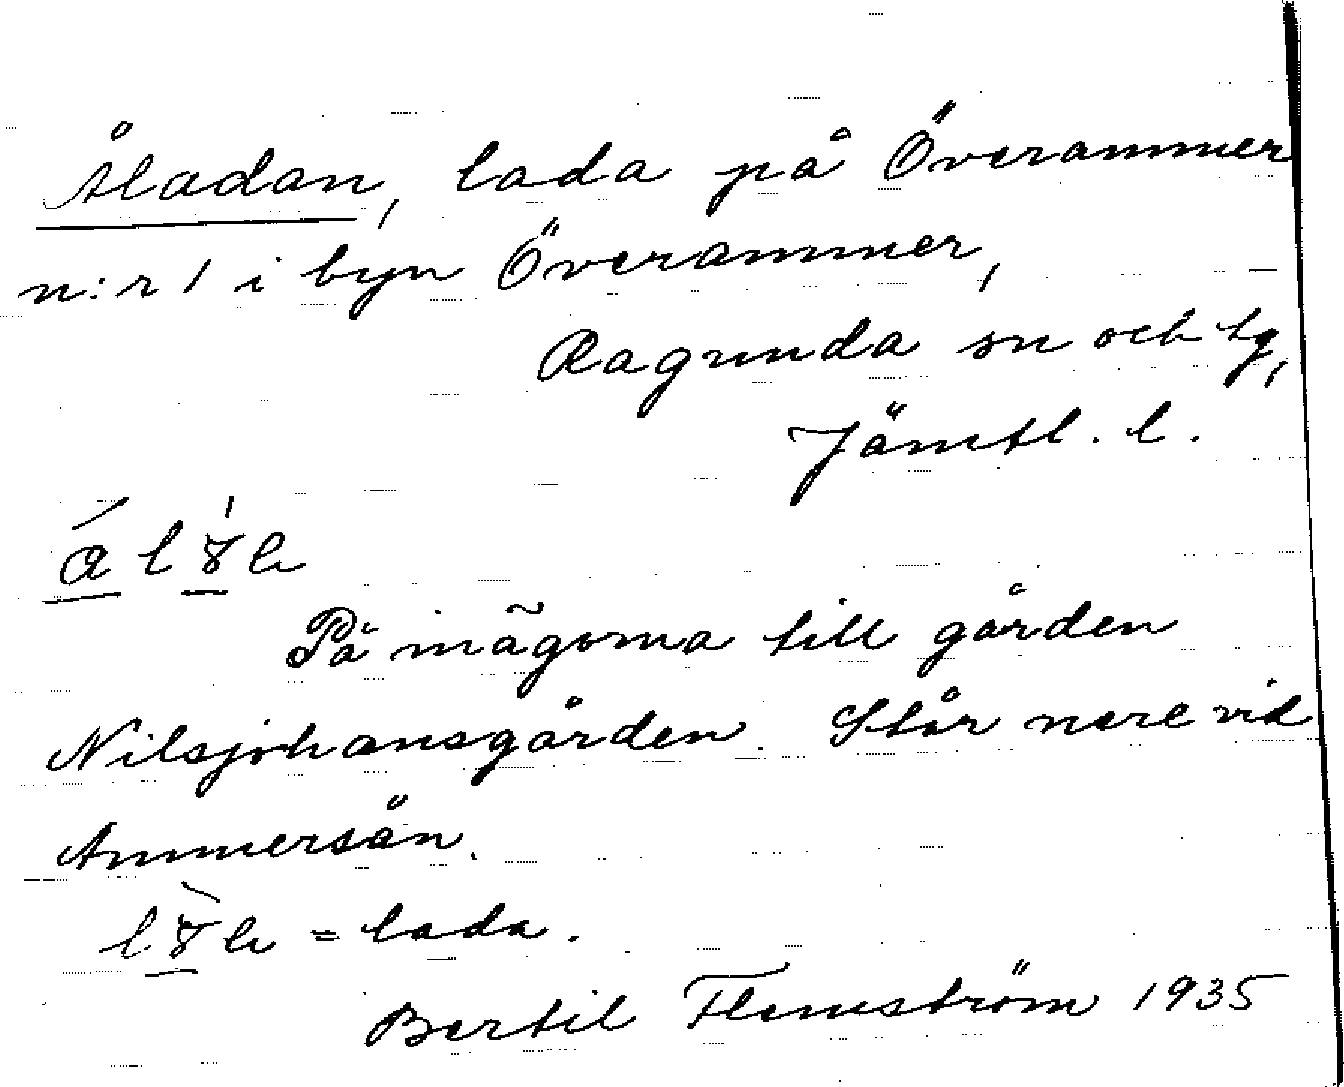 Åladan, lada på Överammer
n:r 1 i byn Överammer,
Ragunda sn och tg,
Jämtl. l.
På inägorna till gården
Nilsjohansgården. Står nere vid
Ammersån.
= lada.
Bertil Flemström 1935